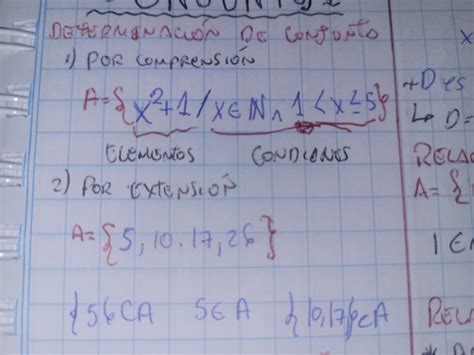 CONJUNTOS
DETERMINACIÓN DE CONJUNTO
1) POR COMPRENSIÓN
A={x²+1/x∈N ∧ 1<x≤5}
ELEMENTOS CONDIONES
2) POR EXTENSIÓN
A={5,10.17,26}
{5}⊂A 5∈A {10,17}⊂A
+D es
↳ D=
RELAC
A={
1∈
RELA
* D